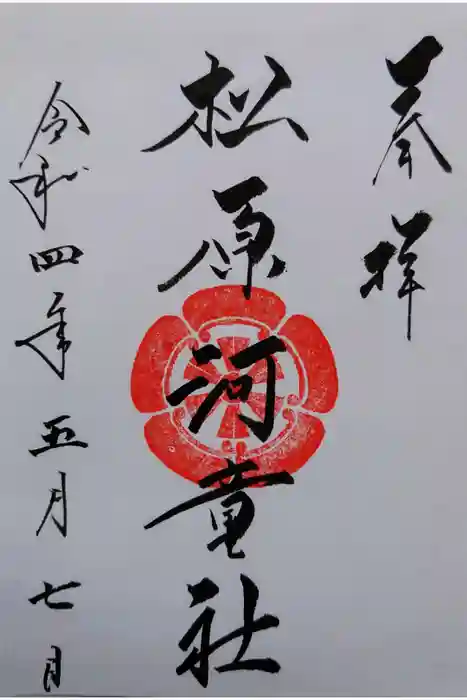 奉拝
松原河竜社
令和四年五月七日